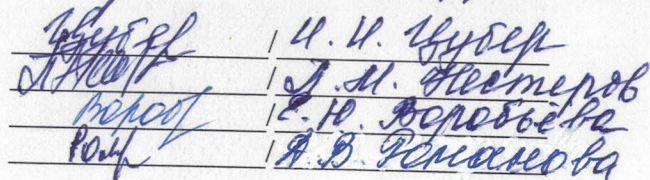 / И. И. Цубер
/ Л. М. Нестеров
Вороб / С. Ю. Воробьёва
Ром / А В. Романова